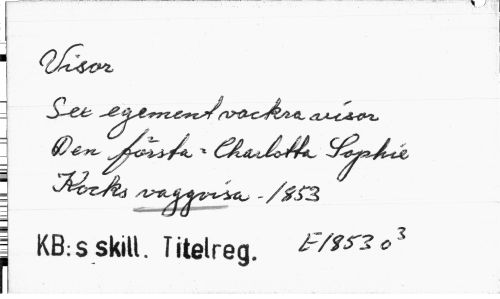 Visor
Sex egement vackra visor
Den första = Charlotta Sophie
Kocks vaggvisa - 1853
KB:s skill. Titelreg. E1853 o³